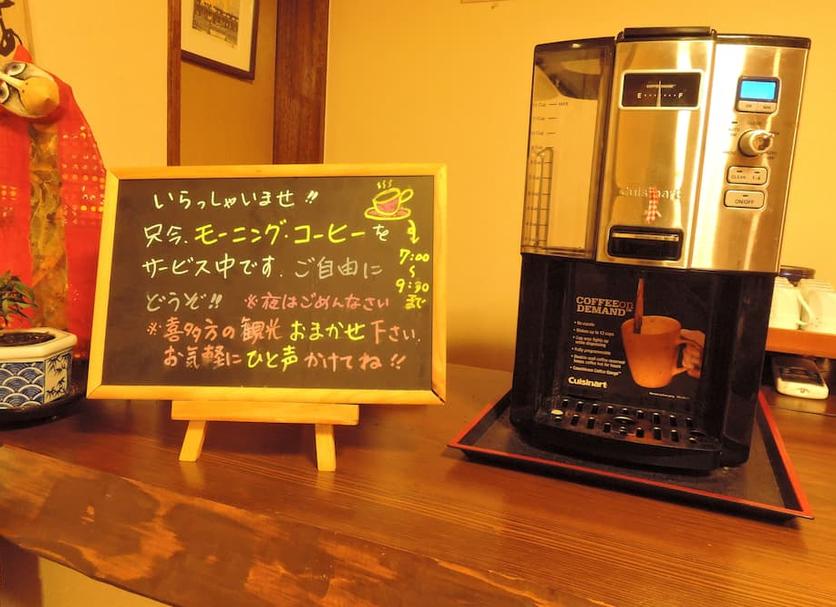 いらっしゃいませ!!
只今、モーニング・コーヒーを
サービス中です。ご自由に
どうぞ!! ※夜はごめんなさい
※喜多方の観光おまかせ下さい。
お気軽にひと声かけてね!!
7:00
〜
9:30
まで
E F
Cuisinart
CLEAN 1-4
ON/OFF
COFFEE on
DEMAND
Cuisinart